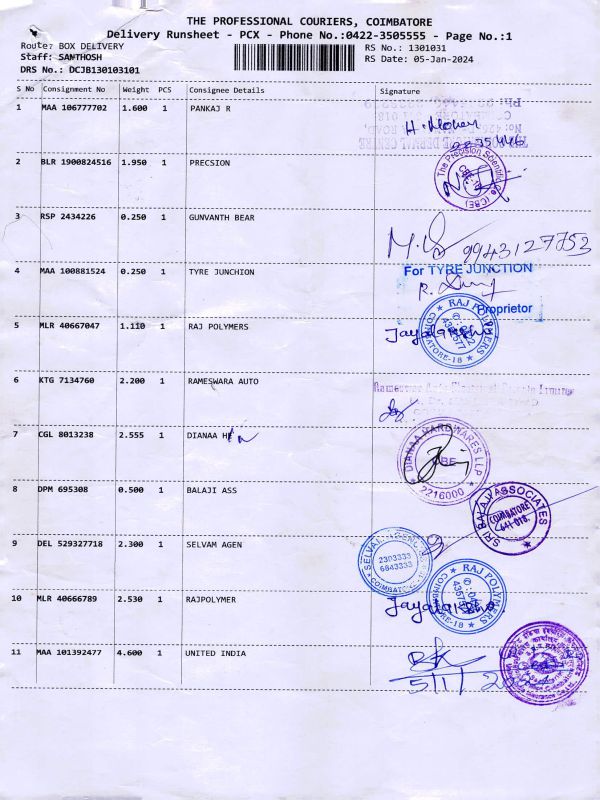 THE PROFESSIONAL COURIERS, COIMBATORE
Delivery Runsheet - PCX - Phone No.:0422-3505555 - Page No.:1
Route: BOX DELIVERY
RS No.: 1301031
Staff: SANTHOSH
RS Date: 05-Jan-2024
DRS No.: DCJB130103101
S No Consignment No Weight PCS Consignee Details Signature
1 MAA 106777702 1.600 1 PANKAJ R
2 BLR 1900824516 1.950 1 PRECSION
The Precision Scientific (CBE)
3 RSP 2434226 0.250 1 GUNVANTH BEAR
9943127753
4 MAA 100881524 0.250 1 TYRE JUNCHION
For TYRE JUNCTION
Proprietor
5 MLR 40667047 1.110 1 RAJ POLYMERS
RAJ POLYMERS
COIMBATORE-18
6 KTG 7134760 2.200 1 RAMESWARA AUTO
7 CGL 8013238 2.555 1 DIANAA
DIANAA HARDWARES LLP
CBE
2216000
8 DPM 695308 0.500 1 BALAJI ASS
SRI BALAJI ASSOCIATES
COIMBATORE
641-018.
9 DEL 529327718 2.300 1 SELVAM AGEN
SELVAM
2303333
6643333
COIMBATORE
10 MLR 40666789 2.530 1 RAJPOLYMER
RAJ POLYMERS
COIMBATORE-18
11 MAA 101392477 4.600 1 UNITED INDIA
5/1/